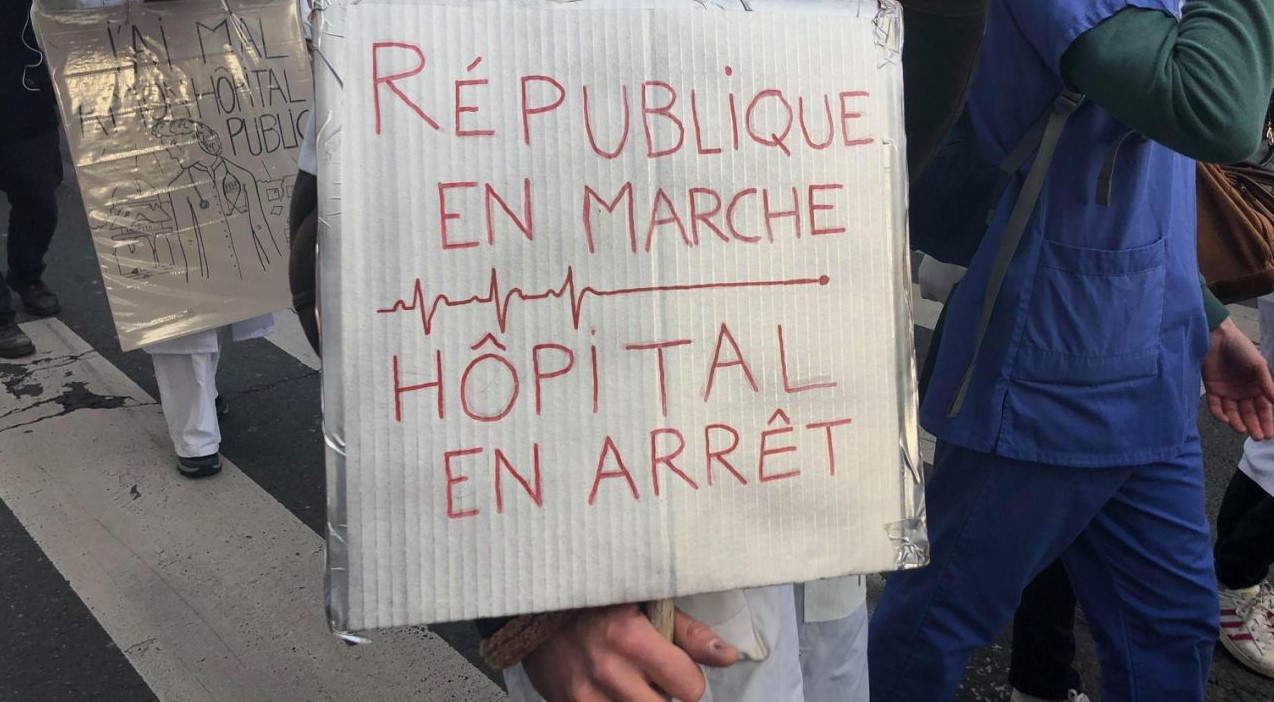 J'AI MAL
HÔPITAL
PUBLIC
RÉPUBLIQUE
EN MARCHE
HÔPITAL
EN ARRÊT